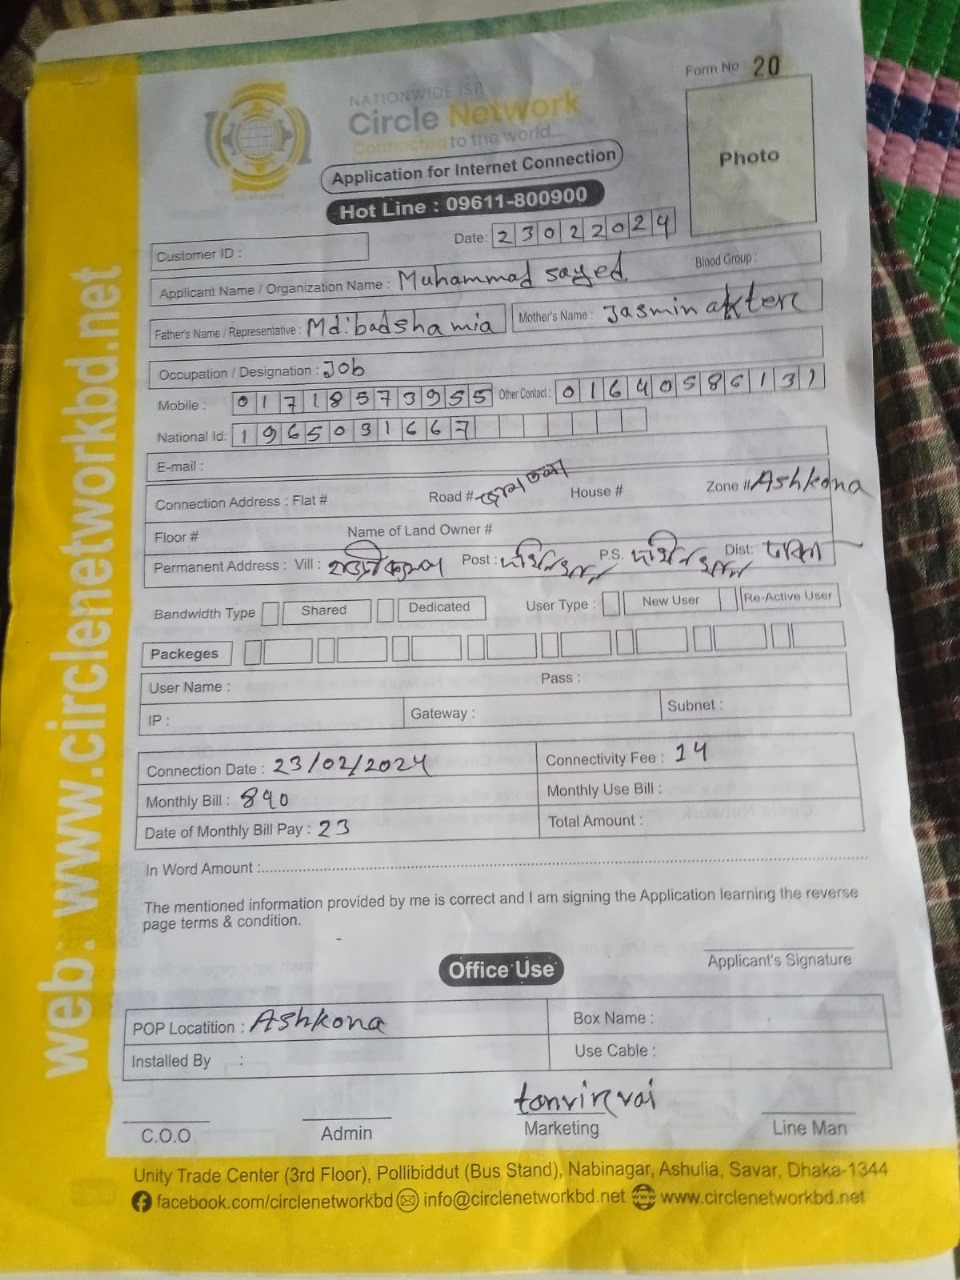 Form No : 20
NATIONWIDE ISP
Circle Network
Connected to the world....
Photo
Application for Internet Connection
Hot Line : 09611-800900
Date: 23022024
Customer ID :
Blood Group :
Applicant Name / Organization Name : Muhammad sayed
Father's Name / Representative : Md: badsha mia Mother's Name : Jasmin akter
Occupation / Designation : Job
Mobile : 01718573955 Other Contact : 01640586131
National Id: 1965031667
E-mail :
Connection Address : Flat # Road # House # Zone # Ashkona
Floor # Name of Land Owner #
Permanent Address : Vill : Post : P.S. Dist: ঢাকা
Bandwidth Type Shared Dedicated User Type : New User Re-Active User
Packeges
User Name : Pass :
IP : Gateway : Subnet :
Connection Date : 23/02/2024 Connectivity Fee : 14
Monthly Bill : 890 Monthly Use Bill :
Date of Monthly Bill Pay : 23 Total Amount :
In Word Amount :
The mentioned information provided by me is correct and I am signing the Application learning the reverse
page terms & condition.
Applicant's Signature
Office Use
POP Locatition : Ashkona Box Name :
Installed By : Use Cable :
tanvir vai
C.O.O Admin Marketing Line Man
Unity Trade Center (3rd Floor), Pollibiddut (Bus Stand), Nabinagar, Ashulia, Savar, Dhaka-1344
facebook.com/circlenetworkbd info@circlenetworkbd.net www.circlenetworkbd.net
web: www.circlenetworkbd.net